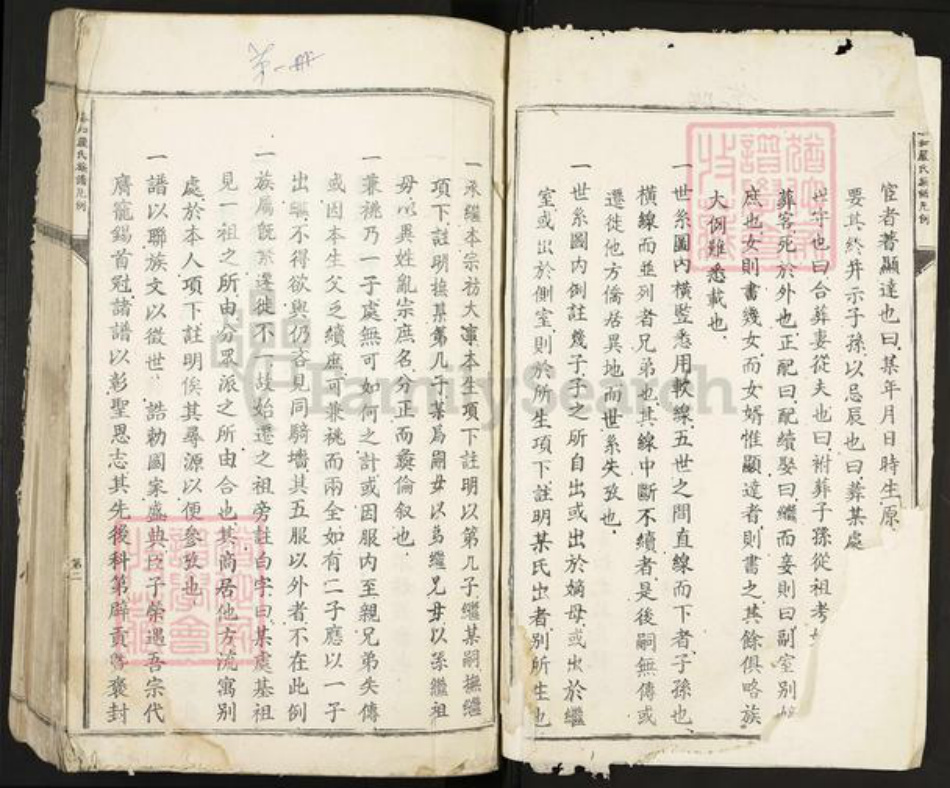 宦者著顯達也曰某年月日時生原
要其終并示子孫以忌辰也曰葬某處
守也曰合葬妻從夫也曰祔葬子孫從祖考
葬客死於外也正配曰配續娶曰繼而妾則曰副室別
庶也女則書幾女而女婿惟顯達者則書之其餘俱略族
大例難悉載也
一世系圖內橫豎悉用軟線五世之間直線而下者子孫也
橫線而並列者兄弟也其線中斷不續者是後嗣無傳或
遷徙他方僑居異地而世系失攷也
一世系圖內例註幾子子之所自出或出於嫡母或出於繼
室或出於側室則於所生項下註明某氏出者別所生也
第一册
一承繼本宗礽大事本生項下註明以第几子繼某嗣撫繼
項下註明撫某第几子某爲嗣毋以弟繼兄毋以孫繼祖
毋以異姓亂宗庶名分正而彝倫叙也
一兼祧乃一子處無可如何之計或因服內至親兄弟失傳
或因本生父乏續庶可兼祧而兩全如有二子應以一子
出嗣不得欲與仍吝見同騎墻其五服以外者不在此例
一族屬旣繁遷徙不一故始遷之祖旁註白字曰某處基祖
見一祖之所由分眾派之所由合也其商居他方流寓別
處於本人項下註明俟其尋源以便參攷也
一譜以聯族文以徵世 誥勅國家盛典臣子榮遇吾宗代
膺寵錫首冠諸譜以彰聖恩志其先後科第辟貢膺褒封
嚴氏族譜凡例
第二
FamilySearch